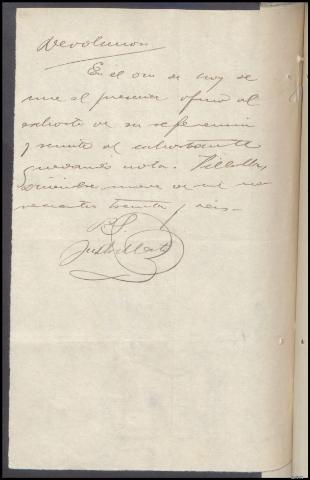 Devolución
En el día de hoy se
une el presente oficio al
exhorto de su referencia
y remito al exhortante
quedando nota. Villalba,
diciembre nueve de mil no-
vecientos treinta y seis.-